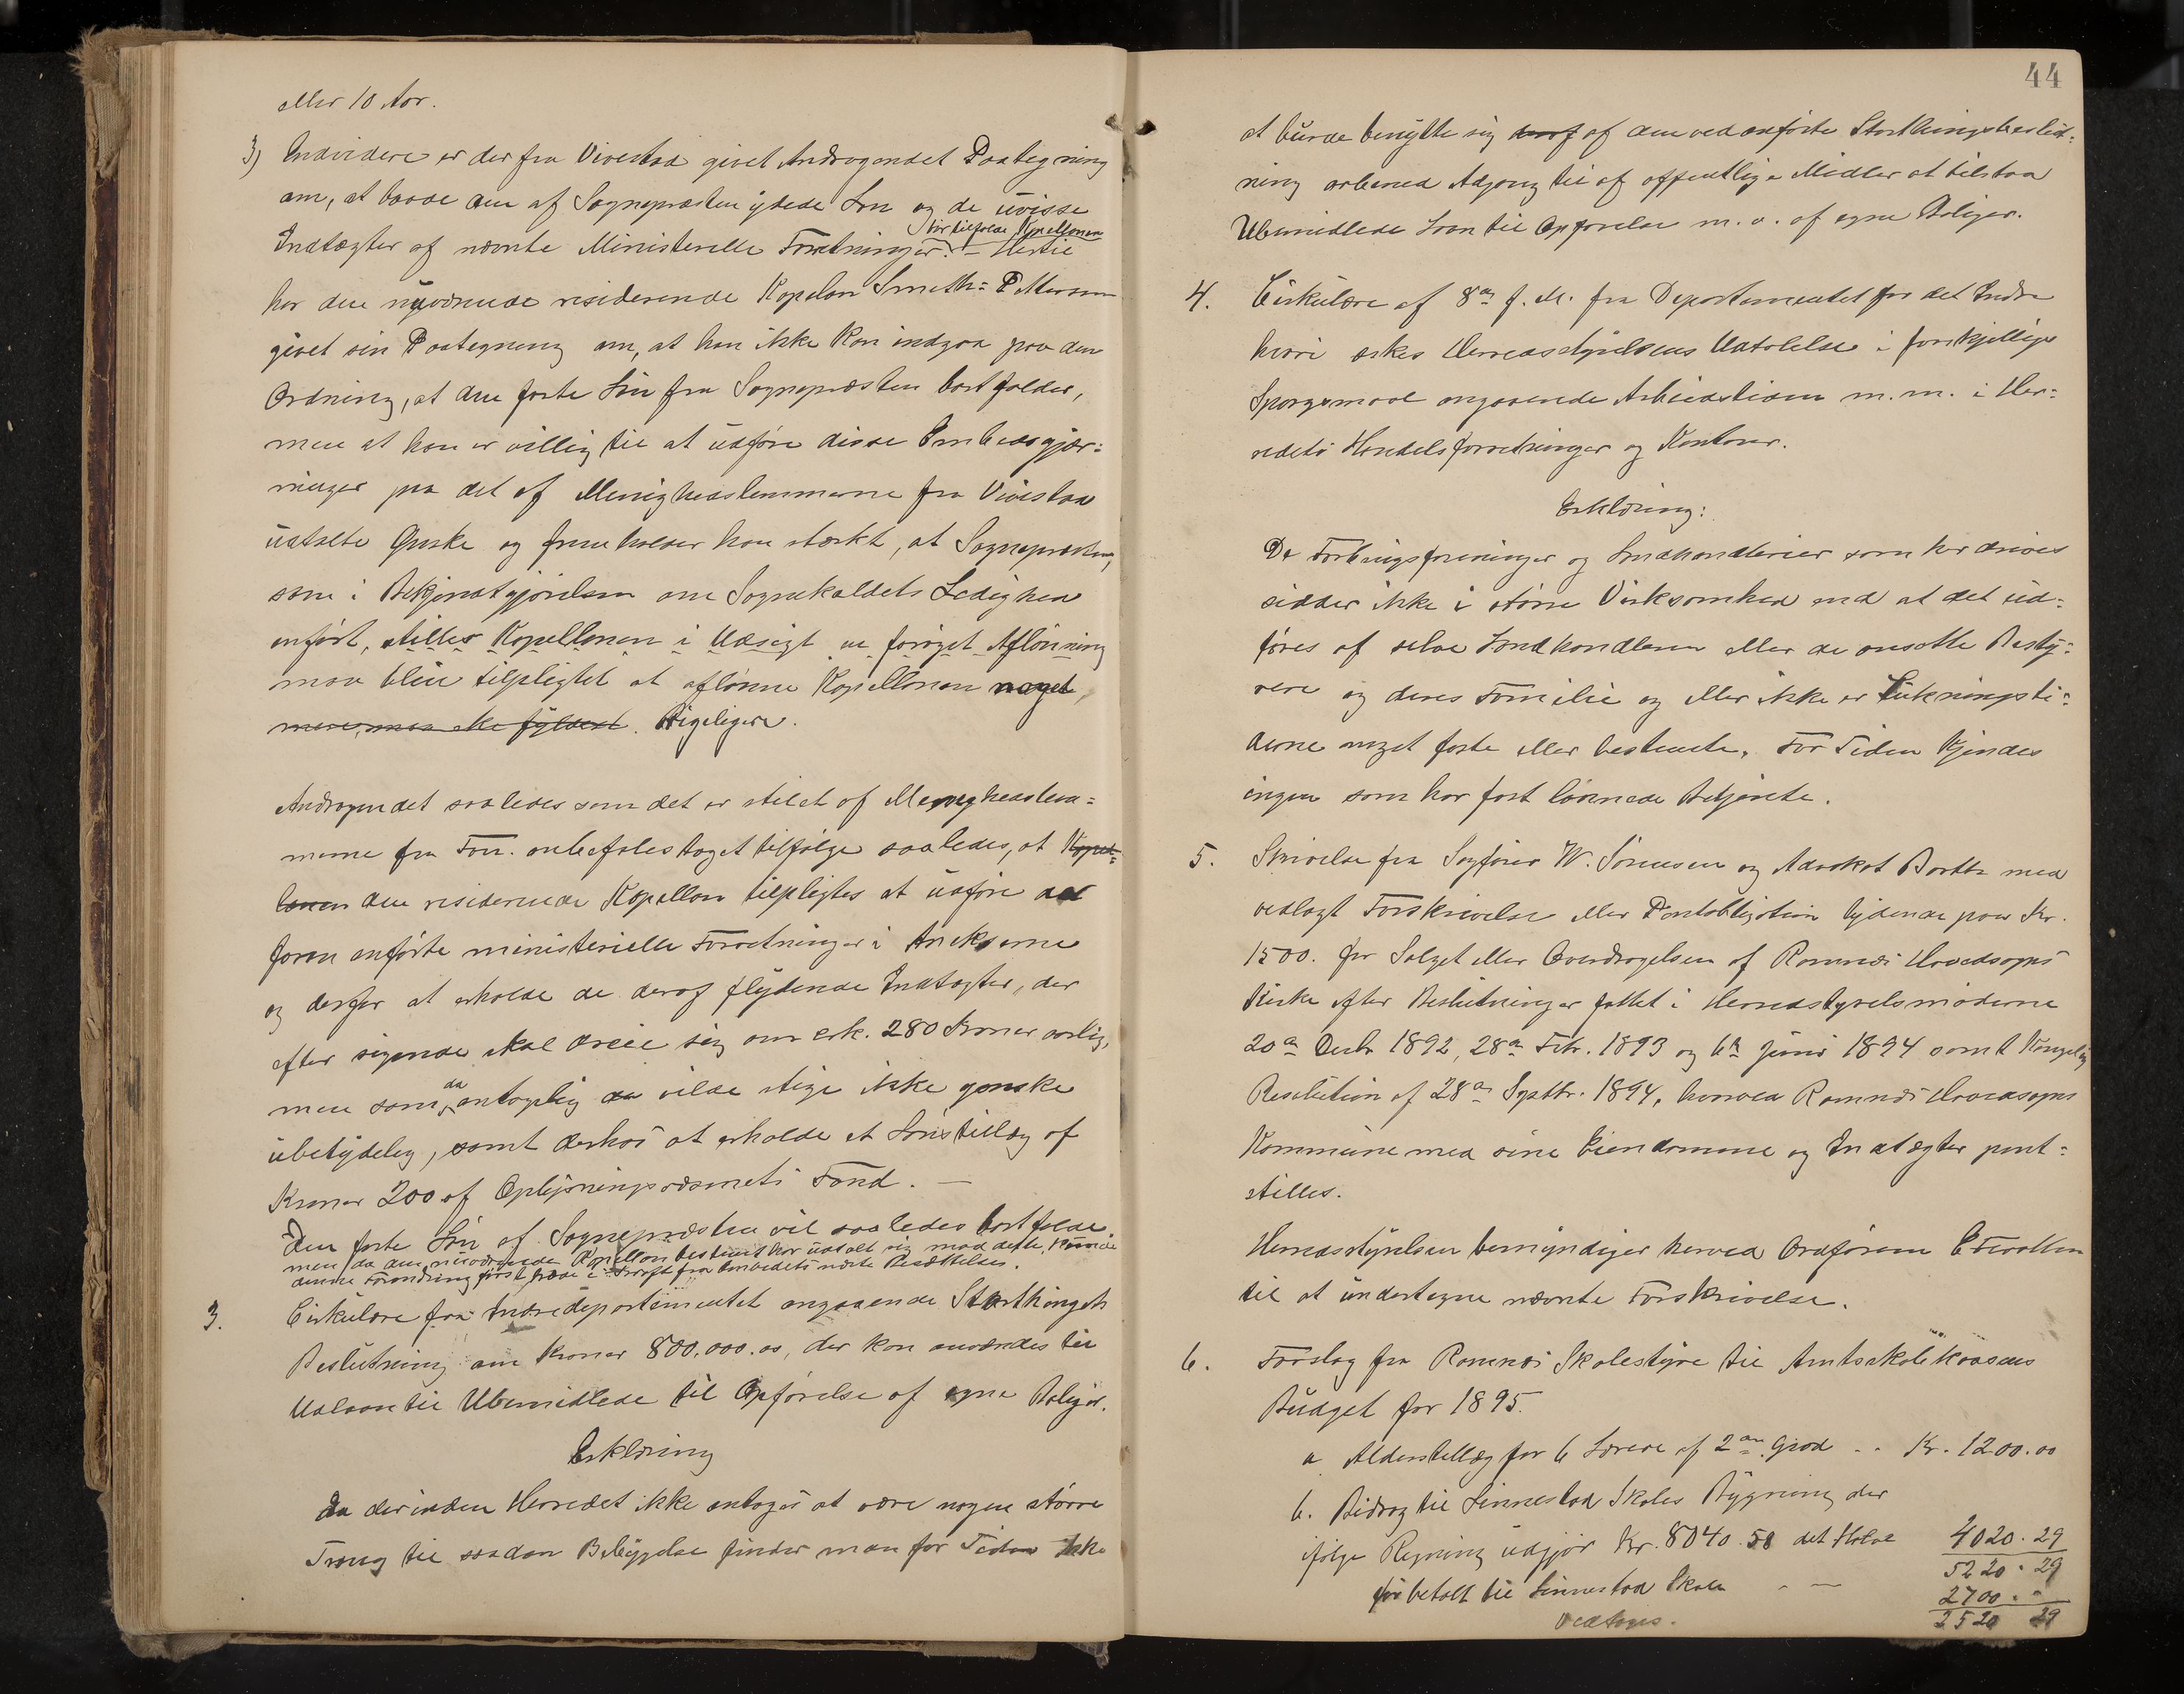 eller 10 Aar.
3) Endvidere er der fra Vivestad givet Andragendet Paategning
om, at baade den af Sognepræsten ydede Løn og de uvisse
bør tilfalde Kapellanen
Indtægter af nævnte Ministerielle Forretninger. – Hertil
har den nuværende residerende Kapelan Smith-Petersen
givet sin Paategning om, at han ikke kan indgaa paa den
Ordning, at den faste Løn fra Sognepræsten bortfalder,
men at han er villig til at udføre disse Embedsgjær=
ninger paa det af Menighedslemmerne fra Vivestad
udtalte Ønske og fremholder han stærkt, at Sognepræsten,
som i Bekjendtgjørelsen om Sognekaldets Ledighed
anført, stilles Kapellanen i Udsigt en forøget Aflønning
maa blive tilpligtet at aflønne Kapellanen noget,
mere, maa ske fyldest. Rigeligere.
Andragendet saaledes som det er stilet af Menighedslem=
merne fra Fon. anbefales taget tilfølge saaledes, at Kapel=
lanen den residerende Kapellan tilpligtes at udføre de
foran anførte ministerielle Forretninger i Annekserne
og derfor at erholde de deraf flydende Indtægter, der
efter sigende skal dreie sig om cirk. 280 Kroner aarlig,
men som da antagelig vilde stige ikke ganske
ubetydelig, samt derhos at erholde et Lønstillæg af
Kroner 200 af Oplysningsvæsenets Fond. –
Den faste Løn af Sognepræsten vil saaledes bortfalde
men da den nuværende Kapellan bestemt har udtalt sig mod dette, kunde
denne Forandring først træde i Kraft fra Embedets næste Besættelse.
3. Cirkulære fra Indredepartementet angaaende Storthingets
Beslutning om Kroner 800,000.00, der kan anvendes til
Udlaan til Ubemidlede til Opførelse af egne Boliger.
Erklæring
Da der inden Herredet ikke antages at være nogen større
Trang til saadan Bebyggelse finder man for Tiden ikke
44
at burde benytte sig deraf af den ved anførte Storthingsbeslut=
ning aabned Adgang til af offentlige Midler at tilstaa
Ubemidlede Laan til Opførelse m. v. af egne Boliger.
4. Cirkulære af 8de f. M. fra Departementet for det Indre
hvori æskes Herredsstyrelsens Udtalelse i forskjellige
Spørgsmaal angaaende Arbeidstiden m. m. i Her=
redets Handelsforretninger og Kontorer.
Erklæring:
De Forbrugsforeninger og Landhandlerier som her drives
sidder ikke i større Virksomhed end at det ud=
føres af selve Landhandleren eller de ansatte Besty=
rere og deres Familie og eller ikke er Lukningsti=
derne noget faste eller bestemte. For Tiden kjendes
ingen som har fast lønnede Betjente.
5. Skrivelse fra Sagfører W. Sørensen og Advokat Barth med
vedlagt Forskrivelse eller Pantobligation lydende paa Kr.
1500. for Salget eller Overdragelsen af Ramnæs Hovedsogns
Kirke efter Beslutninger fattet i Herredsstyrelsmøderne
20de Decbr 1892, 28de Febr. 1893 og 6te Juni 1894 samt Kongelig
Resolution af 28de Septbr. 1894, hvorved Ramnæs Hovedsogns
Kommune med sine Eiendomme og Indtægter pant=
stilles.
Herredsstyrelsen bemyndiger herved Ordføreren
til at undertegne nævnte Forskrivelse.
6. Forslag fra Ramnæs Skolestyre til Amtsskolekassens
Budget for 1895.
a. Alderstillæg for 6 Lærere af 2den Grad - - Kr. 1200.00
b. Bidrag til Linnestad Skoles Bygning der
ifølge Regning udgjør Kr. 8040.58 det Halve 4020.29
5220.29
før betalt til Linnestad Skole - — 2700.-
Vedtages. 2520 29